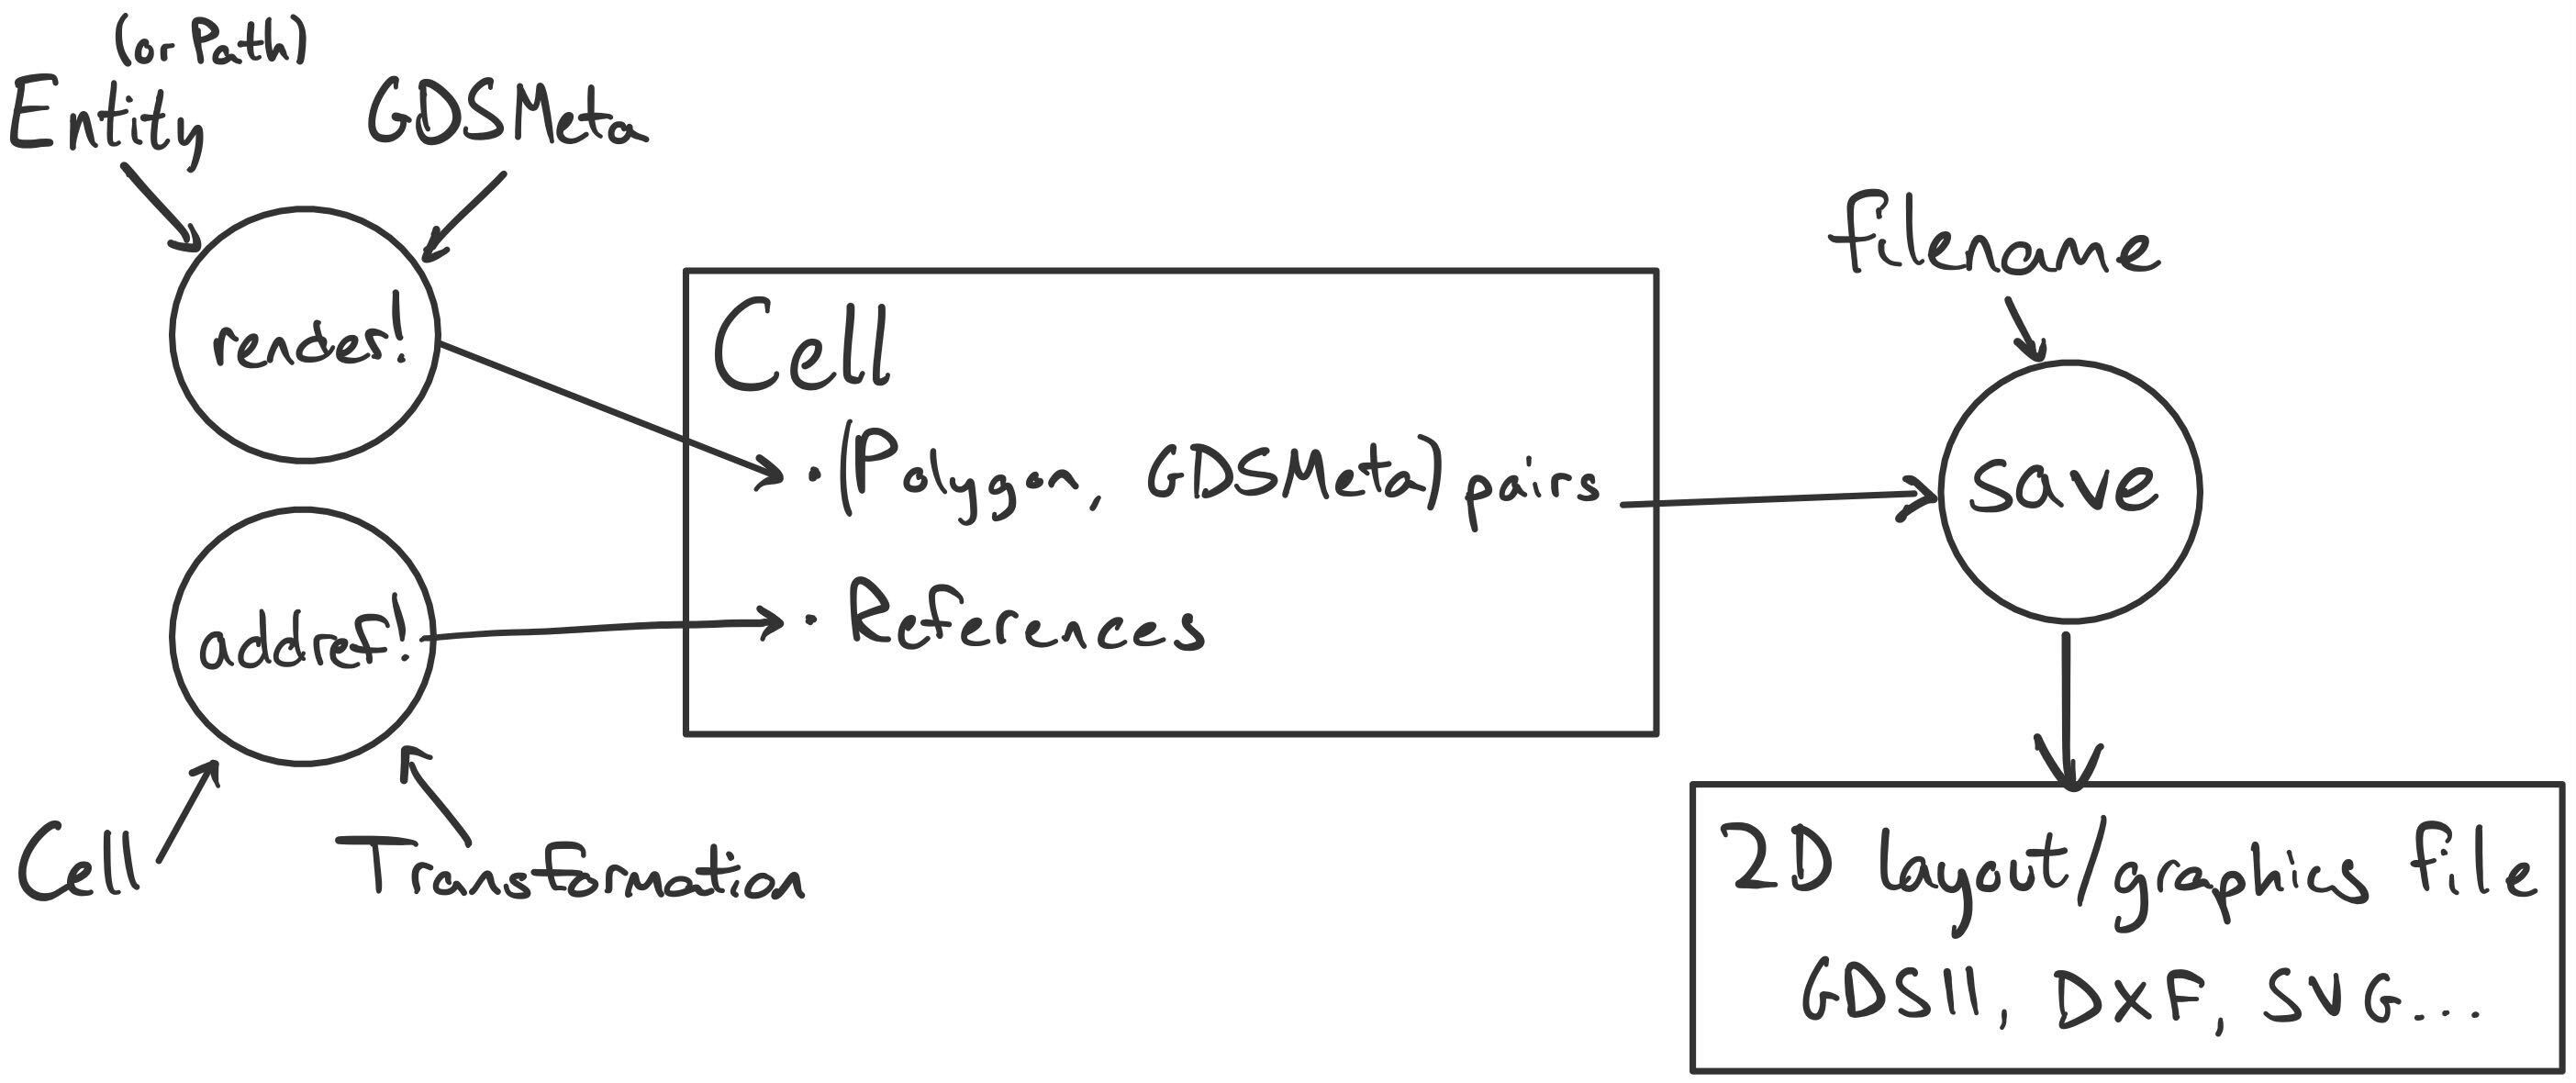 (or Path)
Entity
GDSMeta
render!
addref!
Cell
Transformation
Cell
· (Polygon, GDSMeta) pairs
· References
filename
save
2D layout/graphics file
GDSII, DXF, SVG...